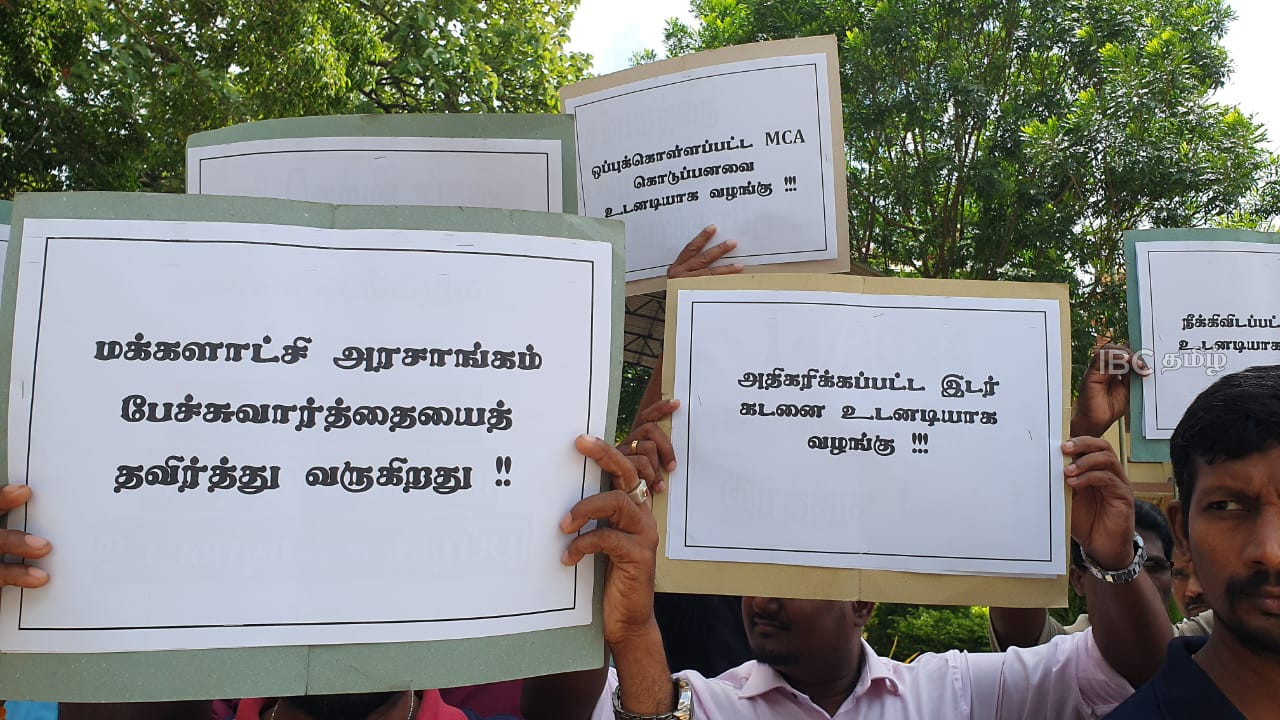 மக்களாட்சி அரசாங்கம்
பேச்சுவார்த்தையைத்
தவிர்த்து வருகிறது !!
ஒப்புக்கொள்ளப்பட்ட MCA
கொடுப்பனவை
உடனடியாக வழங்கு !!!
அதிகரிக்கப்பட்ட இடர்
கடனை உடனடியாக
வழங்கு !!!
நீக்கிவிடப்பட்
உடனடியாக
IBC தமிழ்